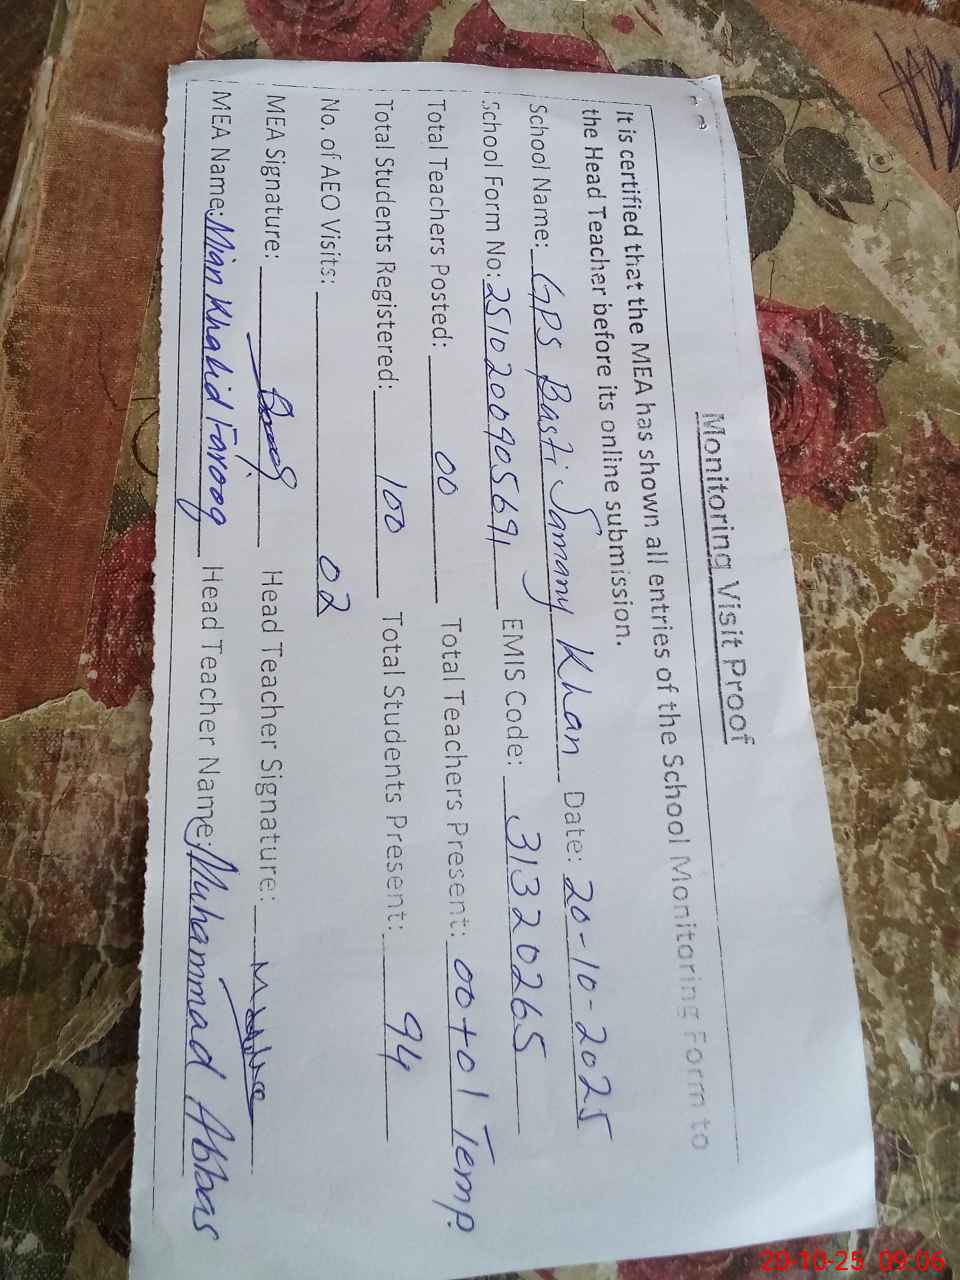 Monitoring Visit Proof
It is certified that the MEA has shown all entries of the School Monitoring Form to
the Head Teacher before its online submission.
School Name: GPS Basti Samany Khan Date: 20-10-2025
School Form No: 251020090569 1 EMIS Code: 31320265
Total Teachers Posted: 00 Total Teachers Present: 00+01 Temp.
Total Students Registered: 100 Total Students Present: 94
No. of AEO Visits: 02
MEA Signature: Head Teacher Signature:
MEA Name: Mian Khalid Farooq Head Teacher Name: Muhammad Abbas
20-10-25 09:06